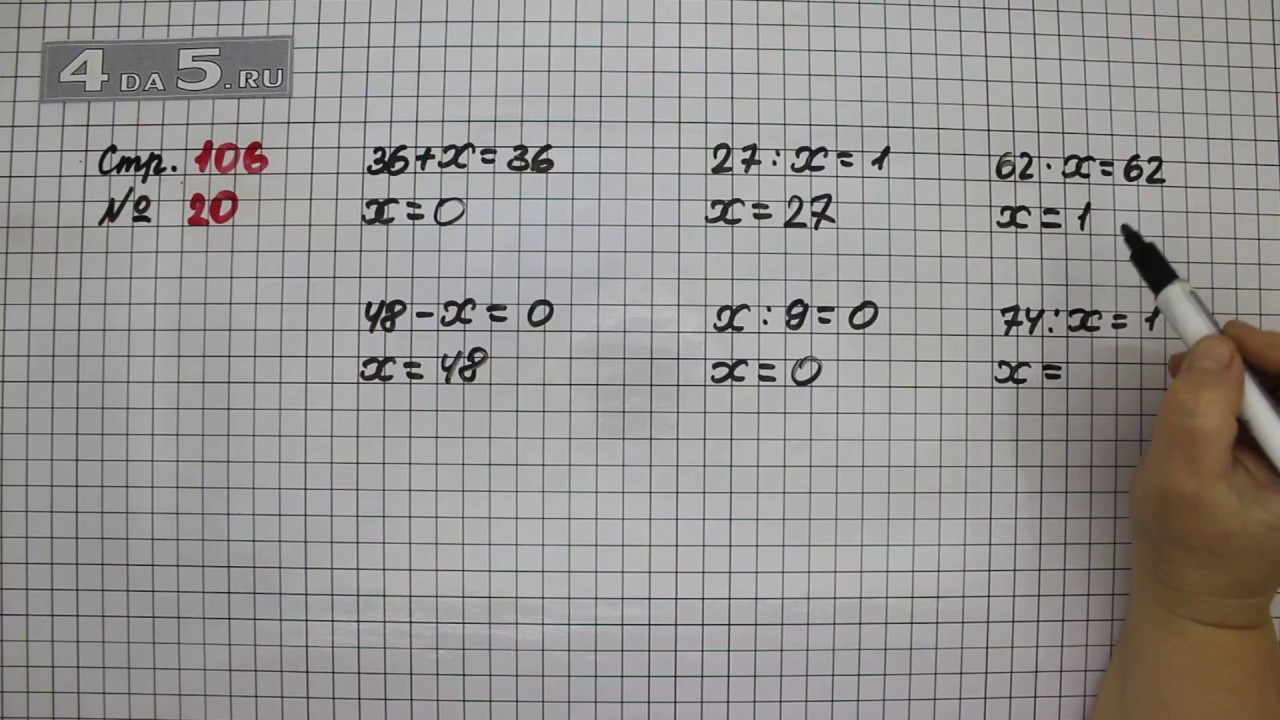 4DA5.RU
Стр. 106
№ 20
36+x=36
x=0
27:x=1
x=27
62·x=62
x=1
48-x=0
x=48
x:9=0
x=0
74:x=1
x=